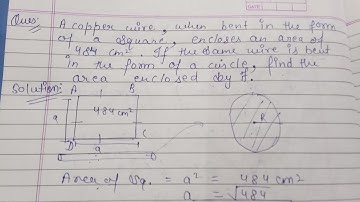 DATE
Ques:
A copper wire, when bent in the form
of a square, encloses an area of
484 cm². If the same wire is bent
in the form of a circle, find the
area enclosed by it.
Solution:
A B
484 cm²
a
D C
a
R
Area of sq. = a² = 484 cm²
a = √484